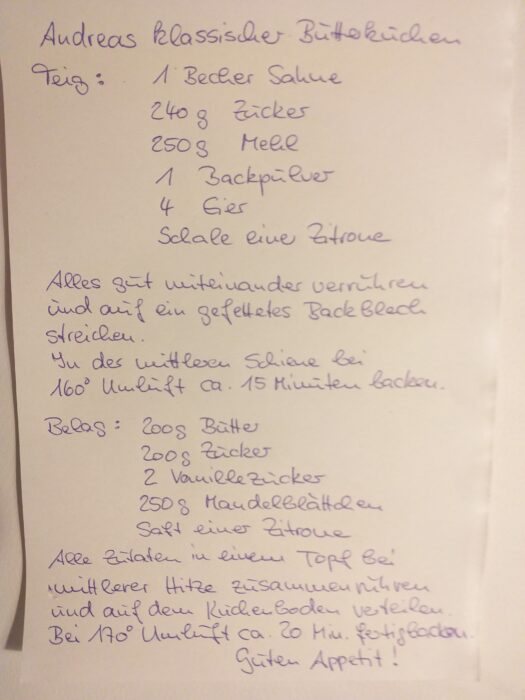 Andreas klassischer Butterkuchen
Teig: 1 Becher Sahne
240 g Zucker
250 g Mehl
1 Backpulver
4 Eier
Schale einer Zitrone
Alles gut miteinander verrühren
und auf ein gefettetes Backblech
streichen.
In der mittleren Schiene bei
160° Umluft ca. 15 Minuten backen.
Belag: 200g Butter
200g Zucker
2 Vanillezucker
250g Mandelblättchen
Saft einer Zitrone
Alle Zutaten in einem Topf bei
mittlerer Hitze zusammenrühren
und auf dem Kuchenboden verteilen.
Bei 170° Umluft ca. 20 Min. fertigbacken.
Guten Appetit!